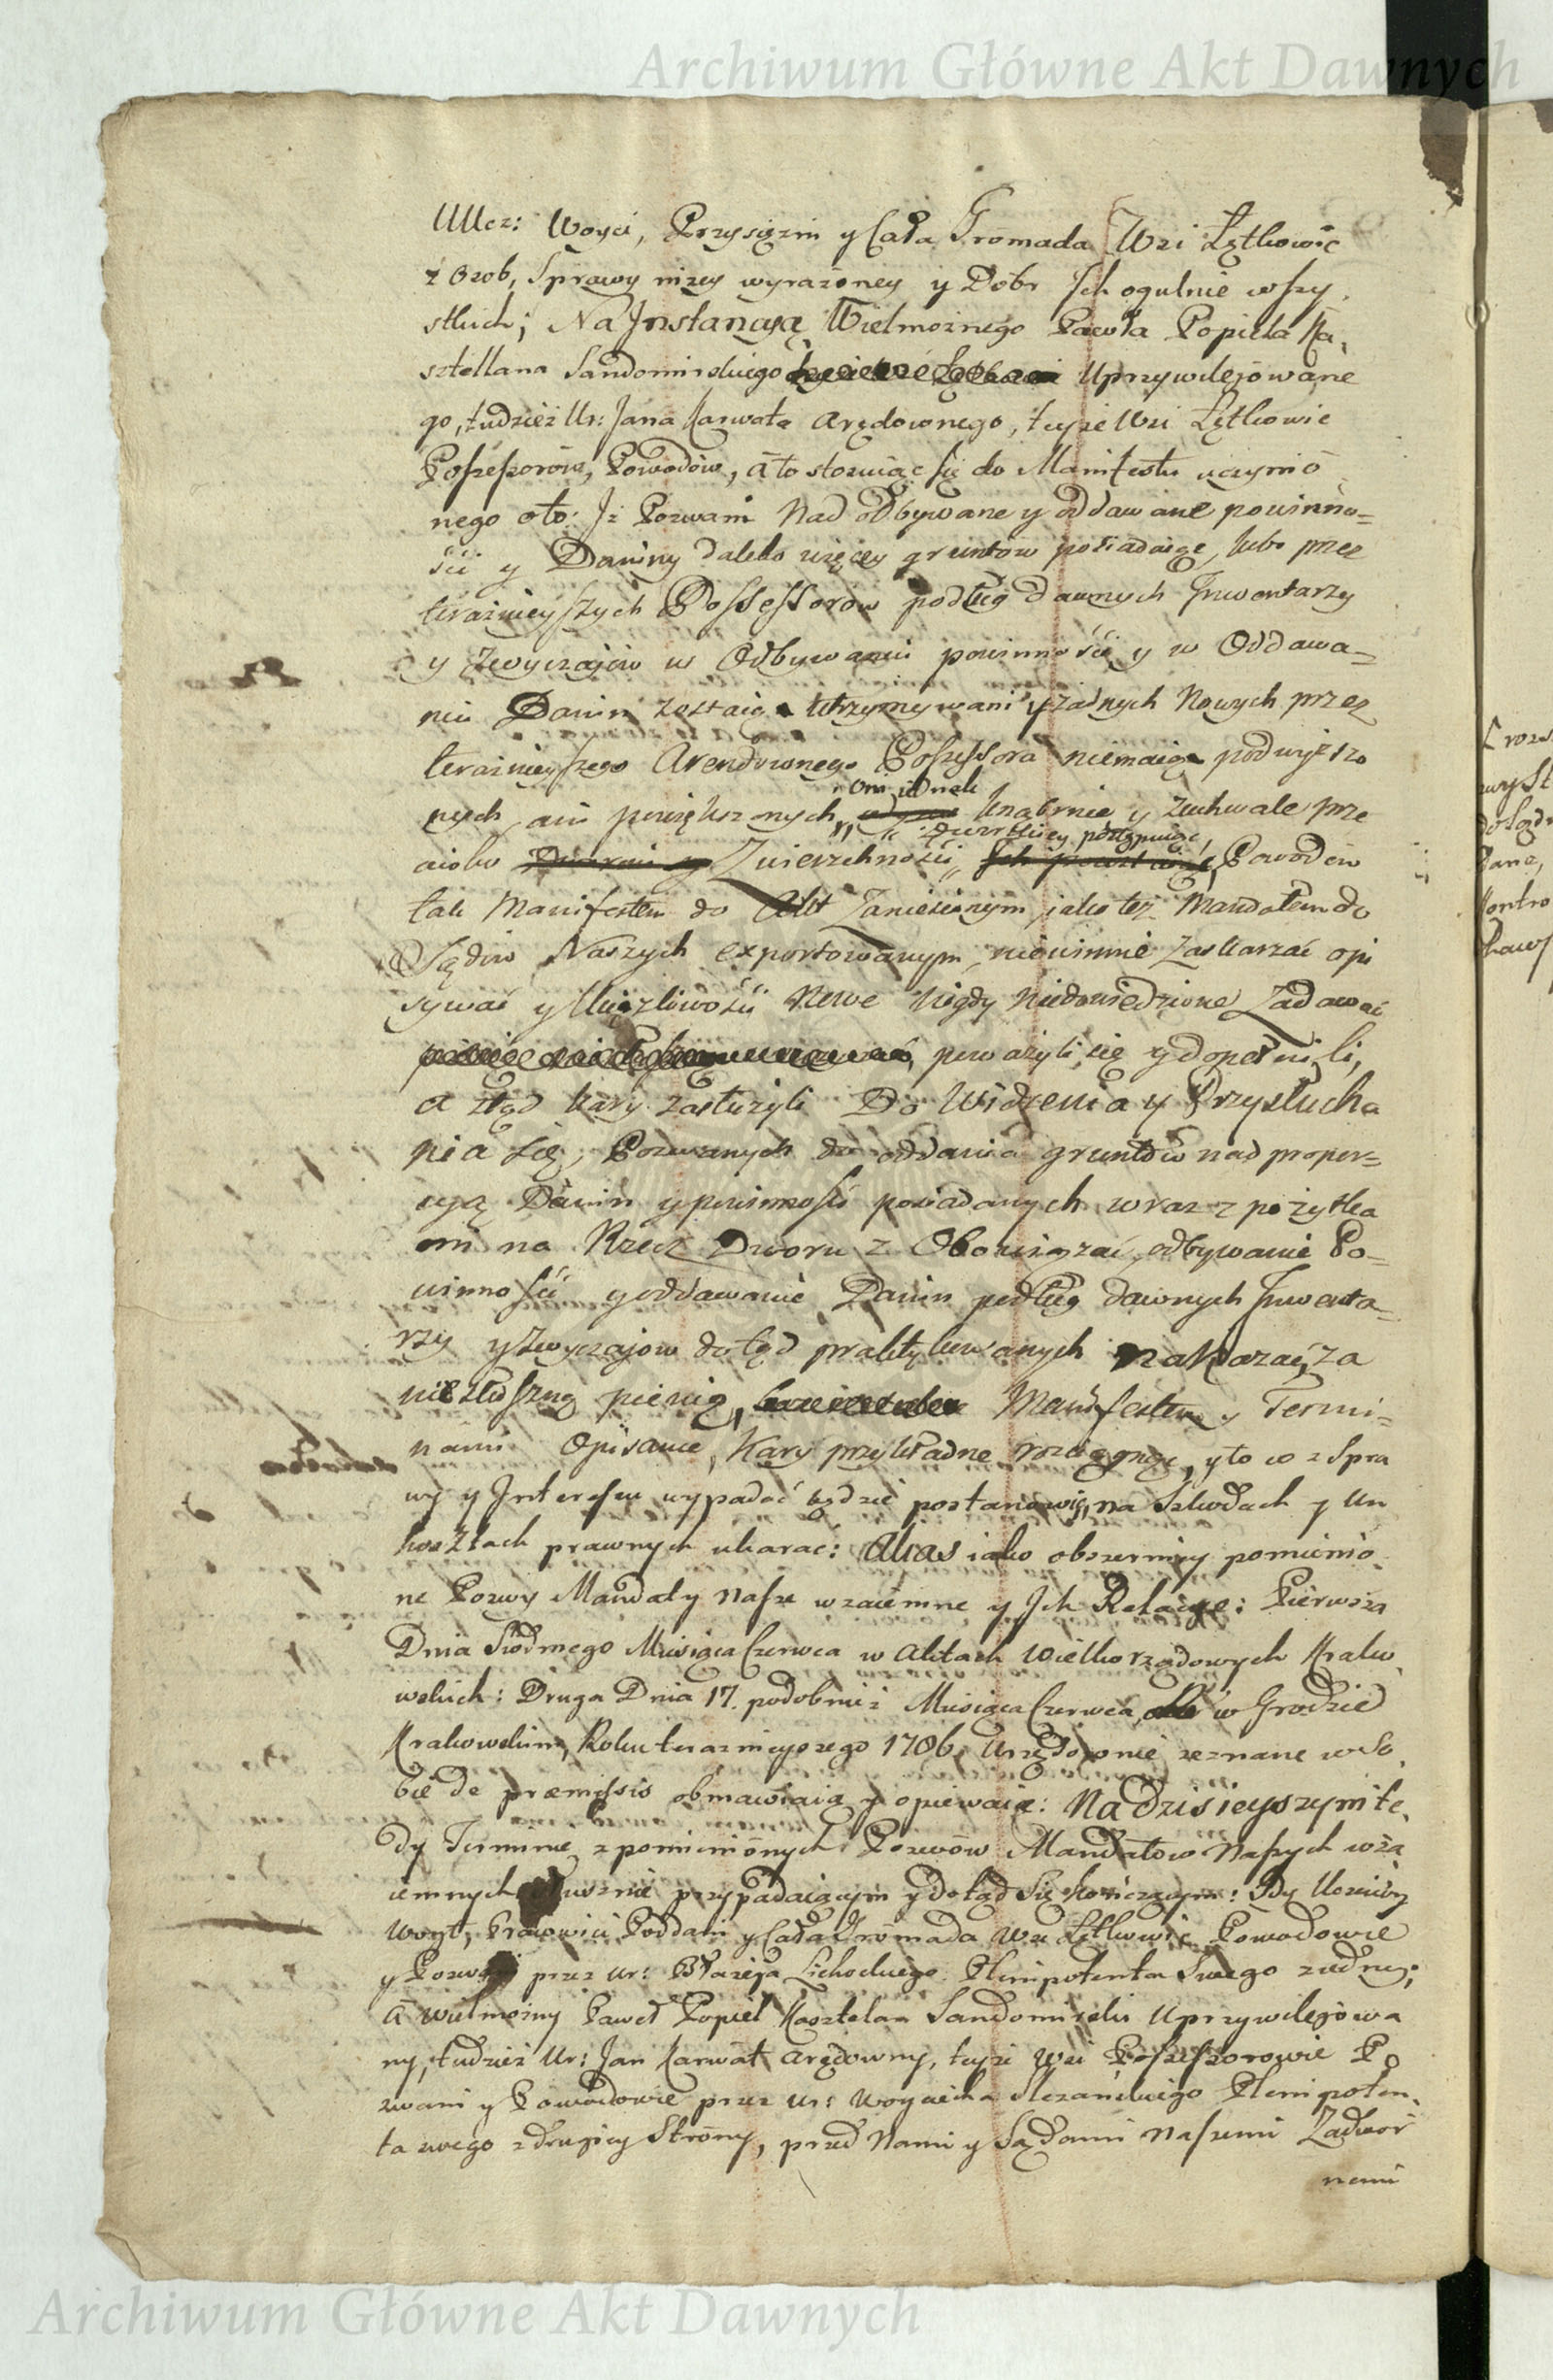 Archiwum Główne Akt Dawnych
Ucz: Woyci, Przysiężni y Cała Gromada Wsi Łętkowic
z Osob, Sprawy niżey wyrażoney y Dóbr Ich ogulnie wszy
stkich; Na Jnstancyą Wielmożnego Pawła Popiela Ka,
sztellana Sandomirskiego Uprzywilejowane
go, tudzież Ur: Jana Karwata Arędownego, teyże Wsi Łętkowic
Possessorów, Powodów, á to stosuiąc się do Manifestu uczynio
nego oto: Jż Pozwani Nad odbywane y oddawane powinno=
ści y Daniny daleko więcey gruntów posiadaiąc, lubo przez
teraźnieyszych Possessorow podług dawnych Jnwentarzy
y Zwyczajów w Odbywaniu powinności y w Oddawa=
niu Danin zostaią utrzymywani y żadnych Nowych przez
teraźnieyszego Arendownego Possessora niemaią podwyższo
nych, ani powiększonych, oni iednak knąbrnie y zuchwale prze
ciwko Zwierzchności dworskiey postępuiąc, Powodów
tak Manifestem do Akt Zaniesionym, jako też Mandatem do
Sądów Naszych exportowanym, niewinnie zaskarżać opi
sywać y Uciążliwości Nowe Nigdy Niedowiedzione Zadawać
poważyli się y dopełnili,
a ztąd kary zasłużyli Do Widzenia y Przysłucha
nia się, Pozwanych do oddania gruntów nad propor=
cyą Danin y powinności posiadanych wraz z pożytka
mi na Rzecz Dworu z Obowiązać, odbywanie Po=
winności y oddawanie Danin podług dawnych Jnwenta=
rzy y Zwyczajow dotąd praktykowanych nakazać, za
niesłuszną pienią, Manifestem y Termi=
nami Opisanie, Kary przykładne rozciągnąć, y to co z Spra
wy y Jnteressu wypadać będzie postanowić, na Szkodach y Un
kosztach prawnych ukarac: Alias iako obszerniey pomienio
ne Pozwy Mandaty Nasze wzaiemne y Jch Relacye: Pierwsza
Dnia Siodmego Miesiąca Czerwca w Aktach Wielkorządowych Krako
wskich: Druga Dnia 17. podobnież Miesiąca Czerwca w Grodzie
Krakowskim, Roku teraznieyszego 1786, Urzędownie zeznane w So
bie de præmissis obmawiaią y opiewaią: Na dzisieyszym te,
dy Terminie z pomienionych Pozwów Mandatow Naszych wza
iemnych słusznie przypadaiącym y dotąd się kończącym: Gdy Uczciwy
Woyt, Pracowici Poddani y Cała Gromada Wsi Łętkowic Powodowie
y Pozwani przez Ur: Błażeja Lichockiego Plenipotenta Swego z iedney;
á Wielmożny Paweł Popiel Kasztelan Sandomirski Uprzywilejowa
ny, tudzież Ur: Jan Karwat Arędowny, teyże Wsi Possessorowie Po
zwani y Powodowie przez Ur: Woyciecha Plenipoten,
ta swego z drugiey Strony, przed Nami y Sądami Naszemi Zadwor
nemi
Archiwum Główne Akt Dawnych